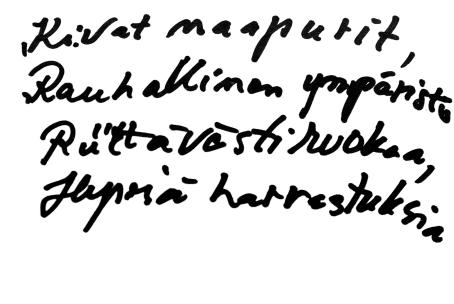 Kivat naapurit,
Rauhallinen ympäristö
Riittävästi ruokaa,
Hyviä harrastuksia